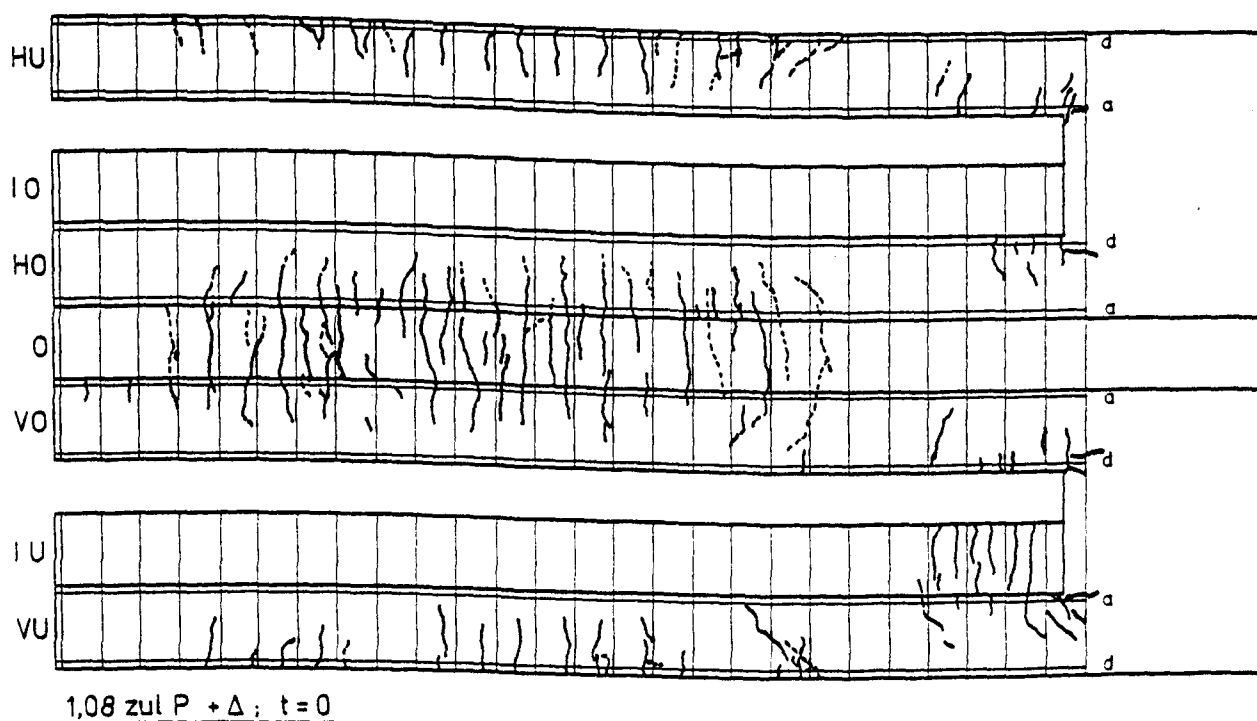 HU
d
a
IO
d
HO
a
O
a
VO
d
IU
a
VU
d
1,08 zul P + Δ ; t = 0